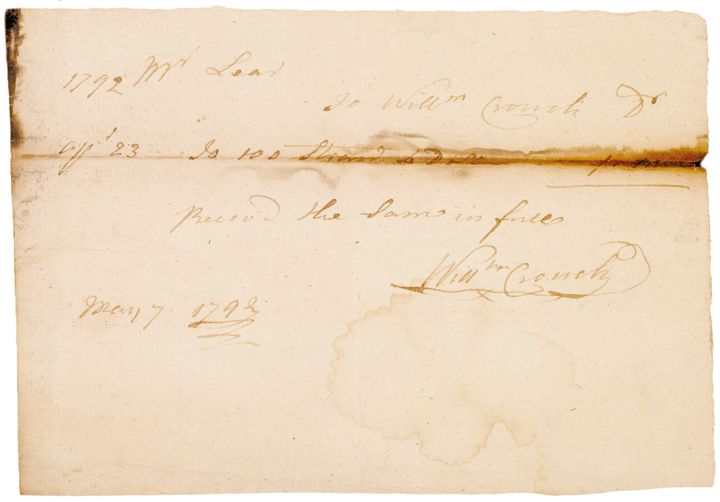 1792 Mr Lear
To Willm Crouch Dr
Apl 23 To 100
Received the Same in full
Willm Crouch
May 7 1792